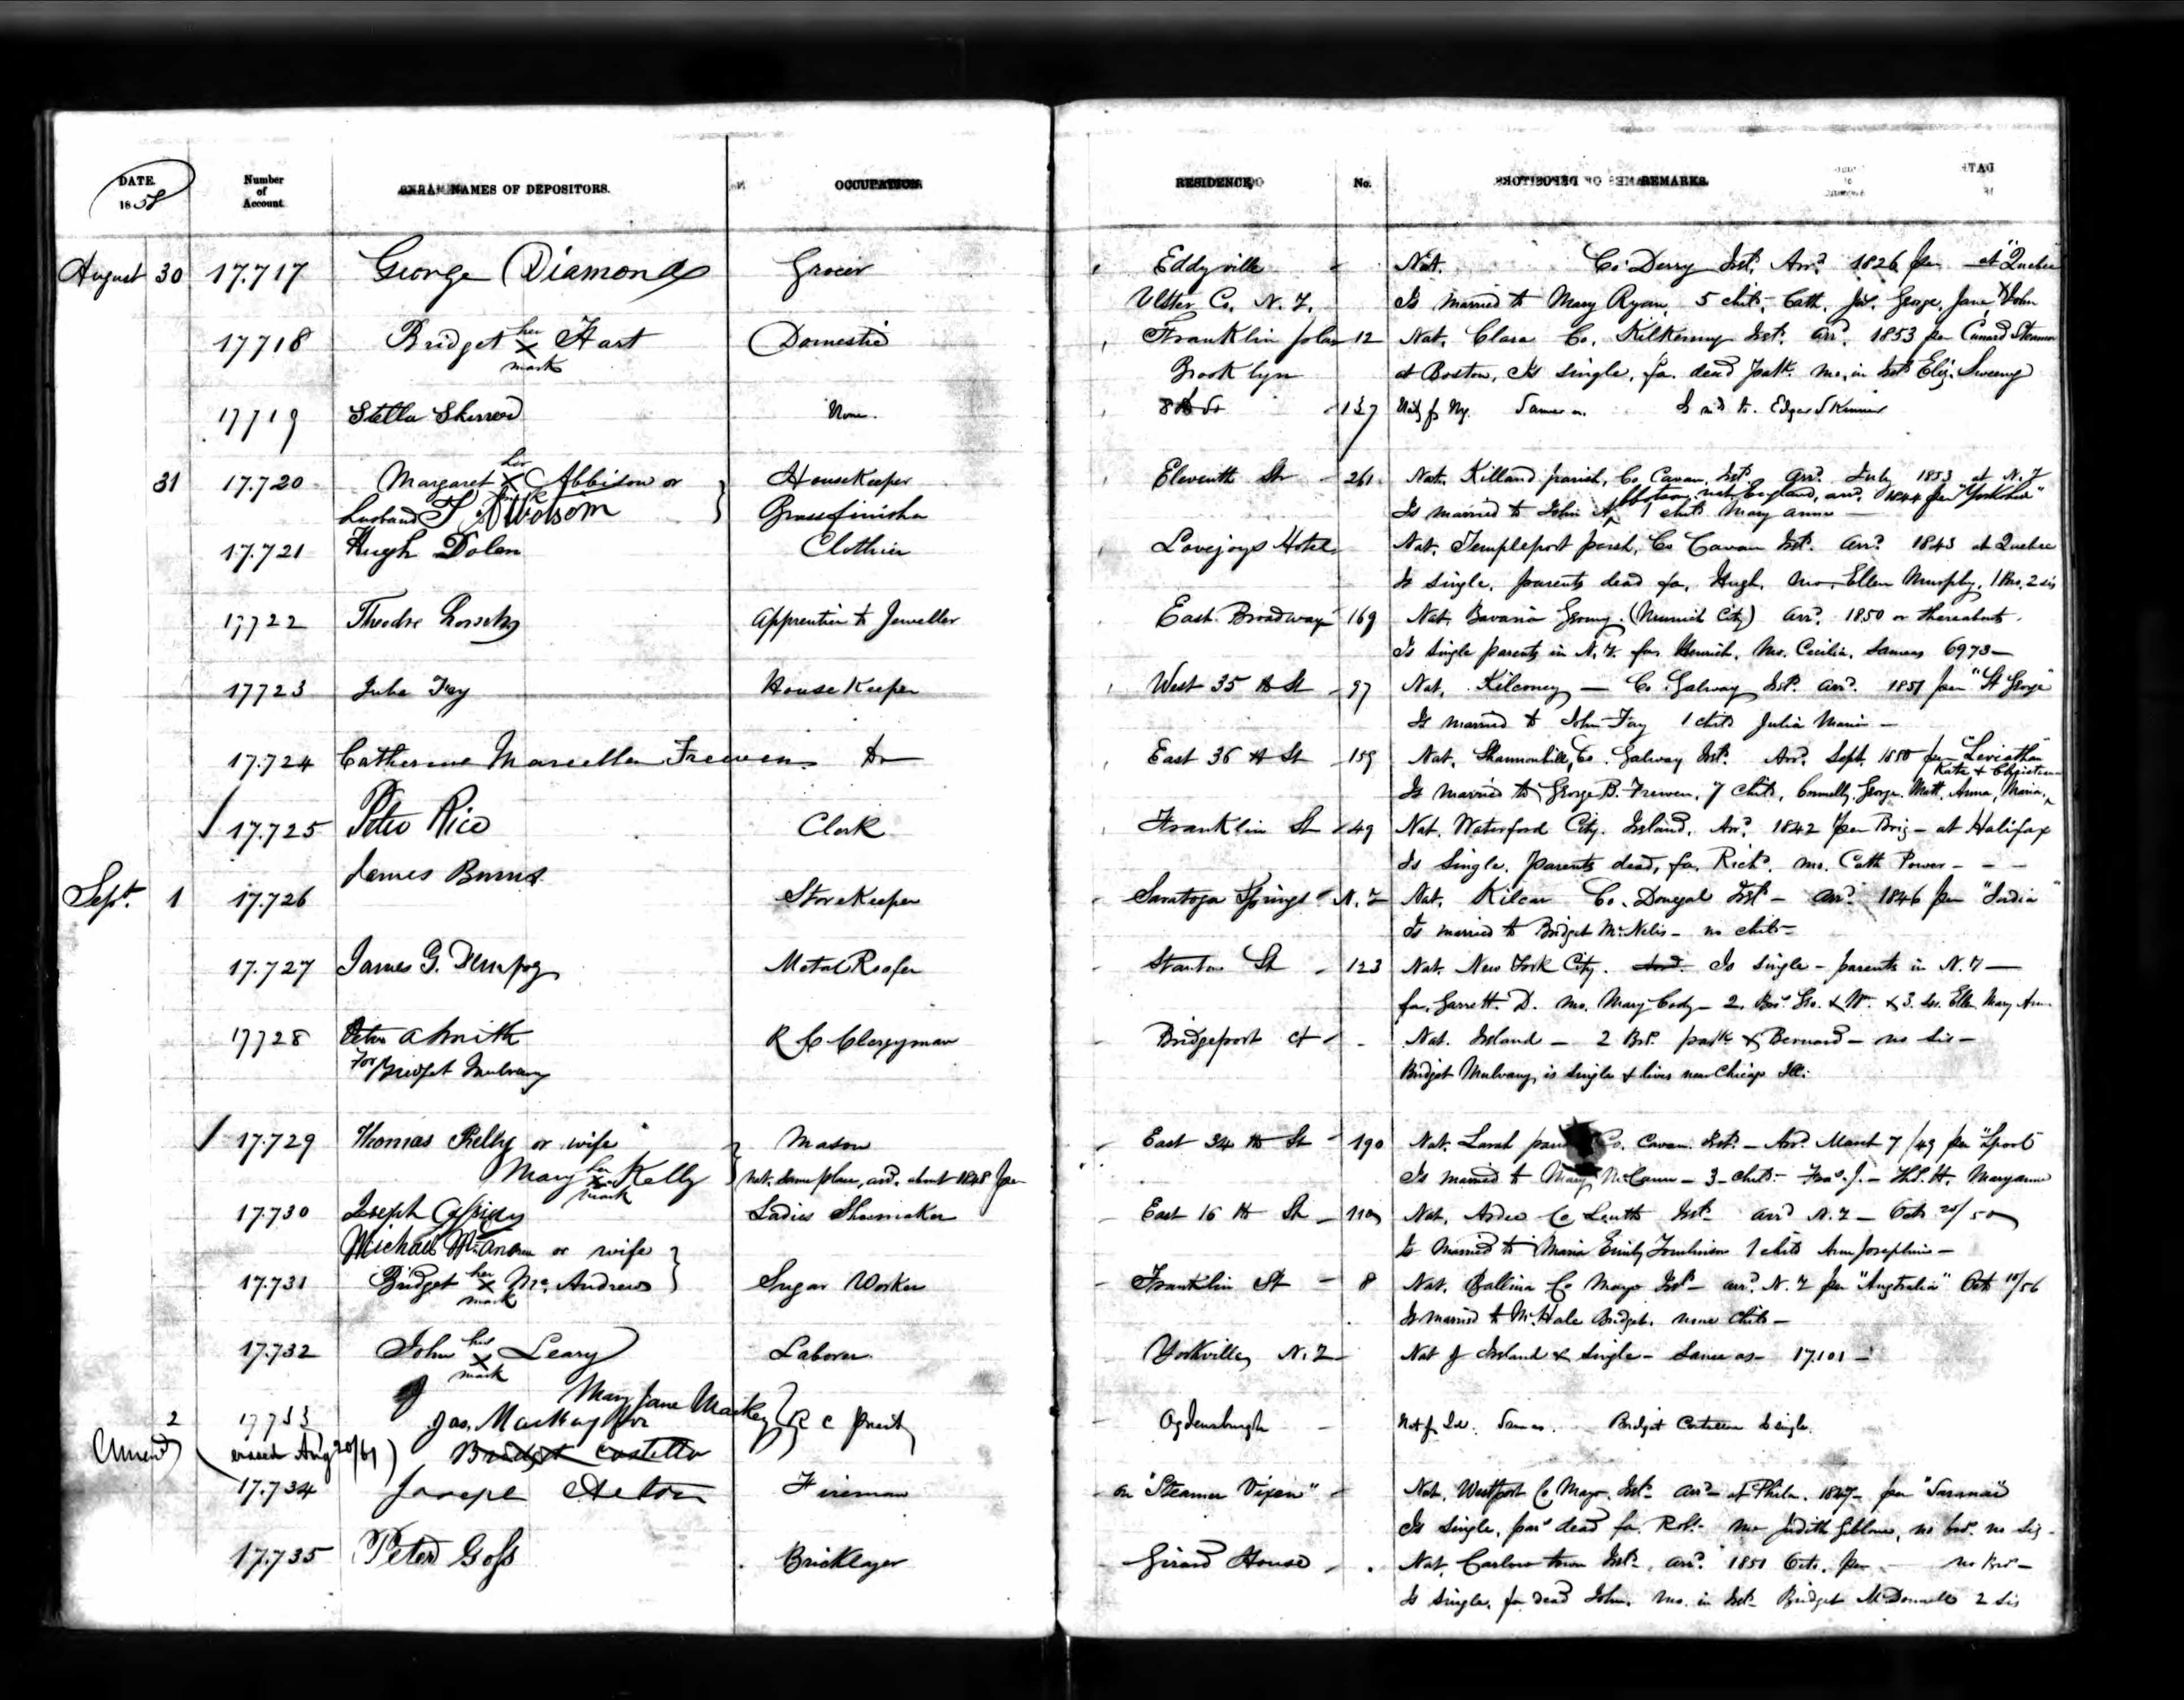 DATE. 1858 Number of Account NAMES OF DEPOSITORS. OCCUPATION. RESIDENCE, No. REMARKS.
August 30 17.717 George Diamond Grocer Eddyville Nat. Co. Derry Irel. Arrd. 1826 per at Quebec
Ulster Co. N.Y. Is married to Mary Ryan, 5 child. Cath. Jas. George, Jane, John
17718 Bridget her x mark Hart Domestic Franklin 12 Nat. Clara Co. Kilkenny Irel. arrd. 1853 per Cunard Steamer
Brooklyn at Boston, Is single, fa. dead Patk. mo. in Irel. Eliz. Sweeny
17719 Stella None. 8th St 137 Same as Edgar Skinner
31 17.720 Margaret her x mark Abbison or Housekeeper Eleventh St 261 Nat. Killand parish, Co. Cavan, Irel. arrd. July 1853 at N.Y
husband Is married to John 1 child Mary Anne nat. England, arrd. 1844 per "Yorkshire"
17.721 Hugh Dolan Clothier Lovejoys Hotel Nat. Templeport parish, Co Cavan Irel. arrd. 1843 at Quebec
Is single, parents dead fa. Hugh, mo. Ellen Murphy, 1 Bro. 2 sis
17722 Theodre Apprentice to Jeweller East Broadway 169 Nat. Bavaria Germy. (Munich City) arrd. 1850 or thereabouts.
Is single parents in N.Y. fa. Henrich, Mo. Cecilia, Same as 6973
17723 Julia Fay House Keeper West 35 th St 97 Nat. Co. Galway Irel. arrd. 1851 per "St George"
Is married to John Fay 1 child Julia Maria
17.724 Catherine Marcella Frewen Do East 36 th St 159 Nat. Co. Galway Irel. Arrd. Sept. 1850 per "Leviathan"
Is married to George B. Frewen, 7 child, Connelly, George, Matt, Anna, Maria, Kate &
17.725 Peter Rice Clerk Franklin St 49 Nat. Waterford City. Ireland, Arrd. 1842 per Brig - at Halifax
Is Single, parents dead, fa. Richd. mo. Cath Power - - -
Sept. 1 17.726 James Burns StoreKeeper Saratoga Springs N.Y Nat. Kilcar Co. Donegal Irel - arrd. 1846 per "India"
Is married to Bridget McNelis - no child -
17.727 James G. Dempsey Metal Roofer Stanton St 123 Nat. New York City. Is single - parents in N.Y —
fa. Garrett D. mo. Mary Cody - 2 Bros. Geo. & Wm. & 3 sis. Ellen Mary Ann
17728 Peter A Smith R C Clergyman Bridgeport Ct Nat. Ireland — 2 Bro. Patk & Bernard — no sis —
For Bridget Mulvany Bridget Mulvany, is single & lives near Chicago Ill.
17.729 Thomas Reilly or wife Mason East 34 th St 190 Nat. Larah Co. Cavan Irel. - Arrd. March 7/49 per "Sport"
Mary her x mark Kelly nat. same place, arrd. about 1848 per Is married to Mary McCann - 3 child - Fras. J. - Thos. H. Maryanne
17.730 Joseph Cassidy Ladies Shoemaker East 16 th St 110 Nat. Ardee Co Louth Irel. arrd N.Y - Octr 20/50
Michael McAndrew or wife Is Married to Maria Emily Tomlinson 1 child Ann Josephine -
17.731 Bridget her x mark McAndrew Sugar Worker Franklin St 8 Nat. Ballina Co Mayo Irel - arrd. N.Y per "Australia" Oct 10/56
Is married to McHale Bridget, none child -
17.732 John his x mark Leary Laborer Yorkville, N.Y Nat of Ireland & single - Same as - 17.101 -
Mary Jane Mackey
2 17733 Jas. Mackey for R C Priest Ogdensburgh Nat of Irel. Same as. Bridget is single
erased Aug 20/61 Bridget Costello
17.734 Joseph Fireman on "Steamer Vixen" Nat. Westport Co Mayo. Irel. arrd - at Phila. 1847 - per "Saranac"
Is single, pars dead fa. Robt. mo Judith no bro. no sis -
17.735 Peter Goss Bricklayer Girard House Nat. Carlow town Irel. arrd. 1851 Octr. per - no Bro -
Is single, fa dead John, mo. in Irel. Bridget McDonnell 2 sis